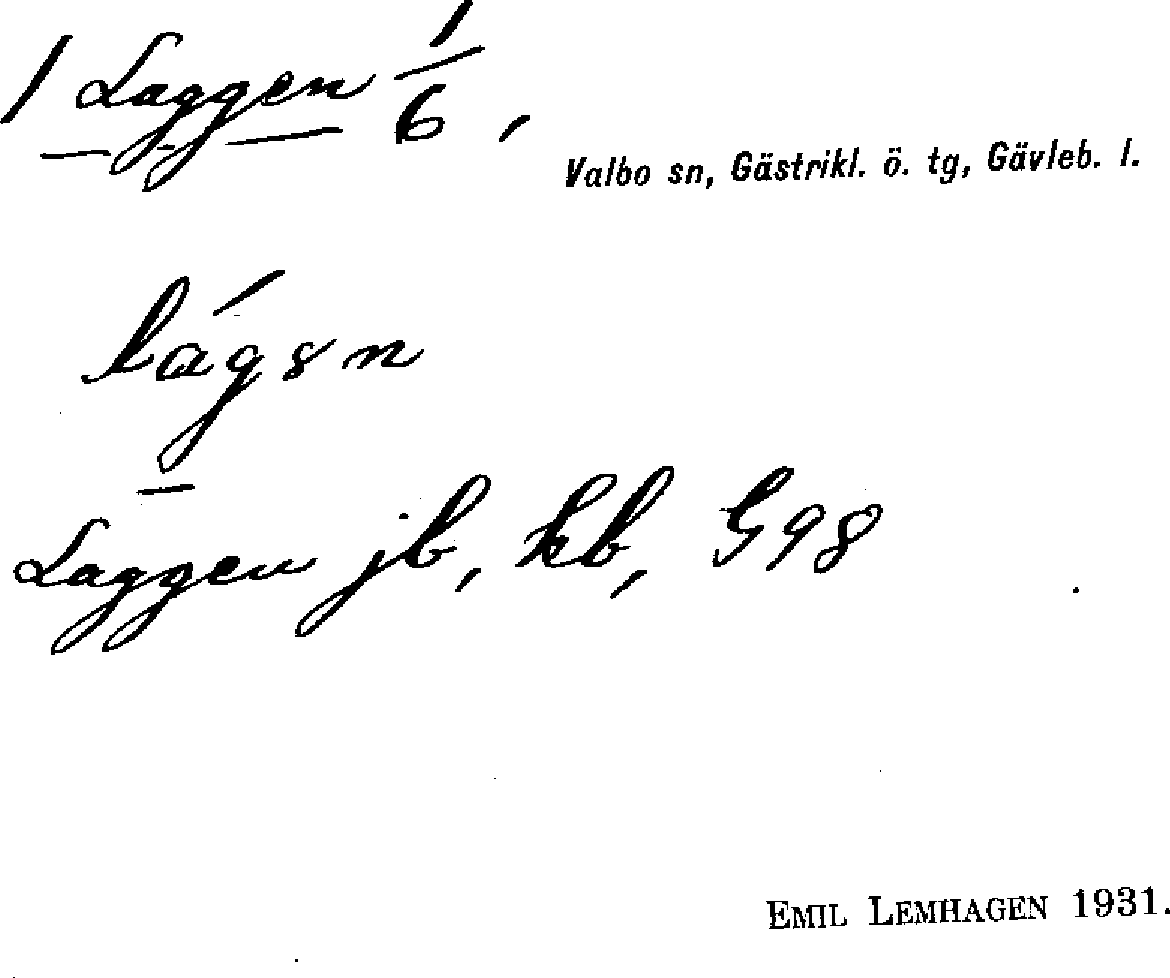 1 Laggen 1/6,
Valbo sn, Gästrikl. ö. tg, Gävleb. l.
lágən
Laggen jb, kb, G98
EMIL LEMHAGEN 1931.